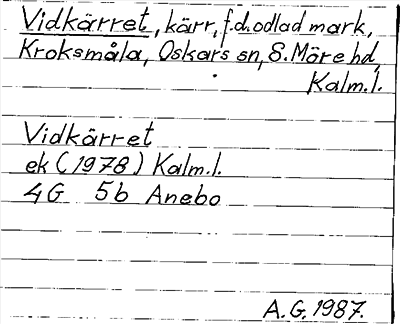 Vidkärret, kärr, f.d. odlad mark,
Kroksmåla, Oskars sn, S. Möre hd,
Kalm.l.
Vidkärret
ek (1978) Kalm.l.
4G 5b Anebo
A.G. 1987.